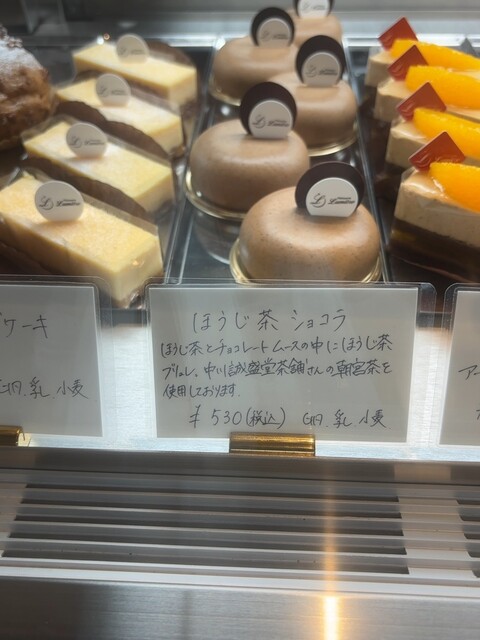 ほうじ茶 ショコラ
ほうじ茶とチョコレートムースの中にほうじ茶
ブリュレ。中川誠盛堂茶舗さんの朝宮茶を
使用しております。
¥530(税込) 卵、乳、小麦
ケーキ
卵、乳、小麦
ア